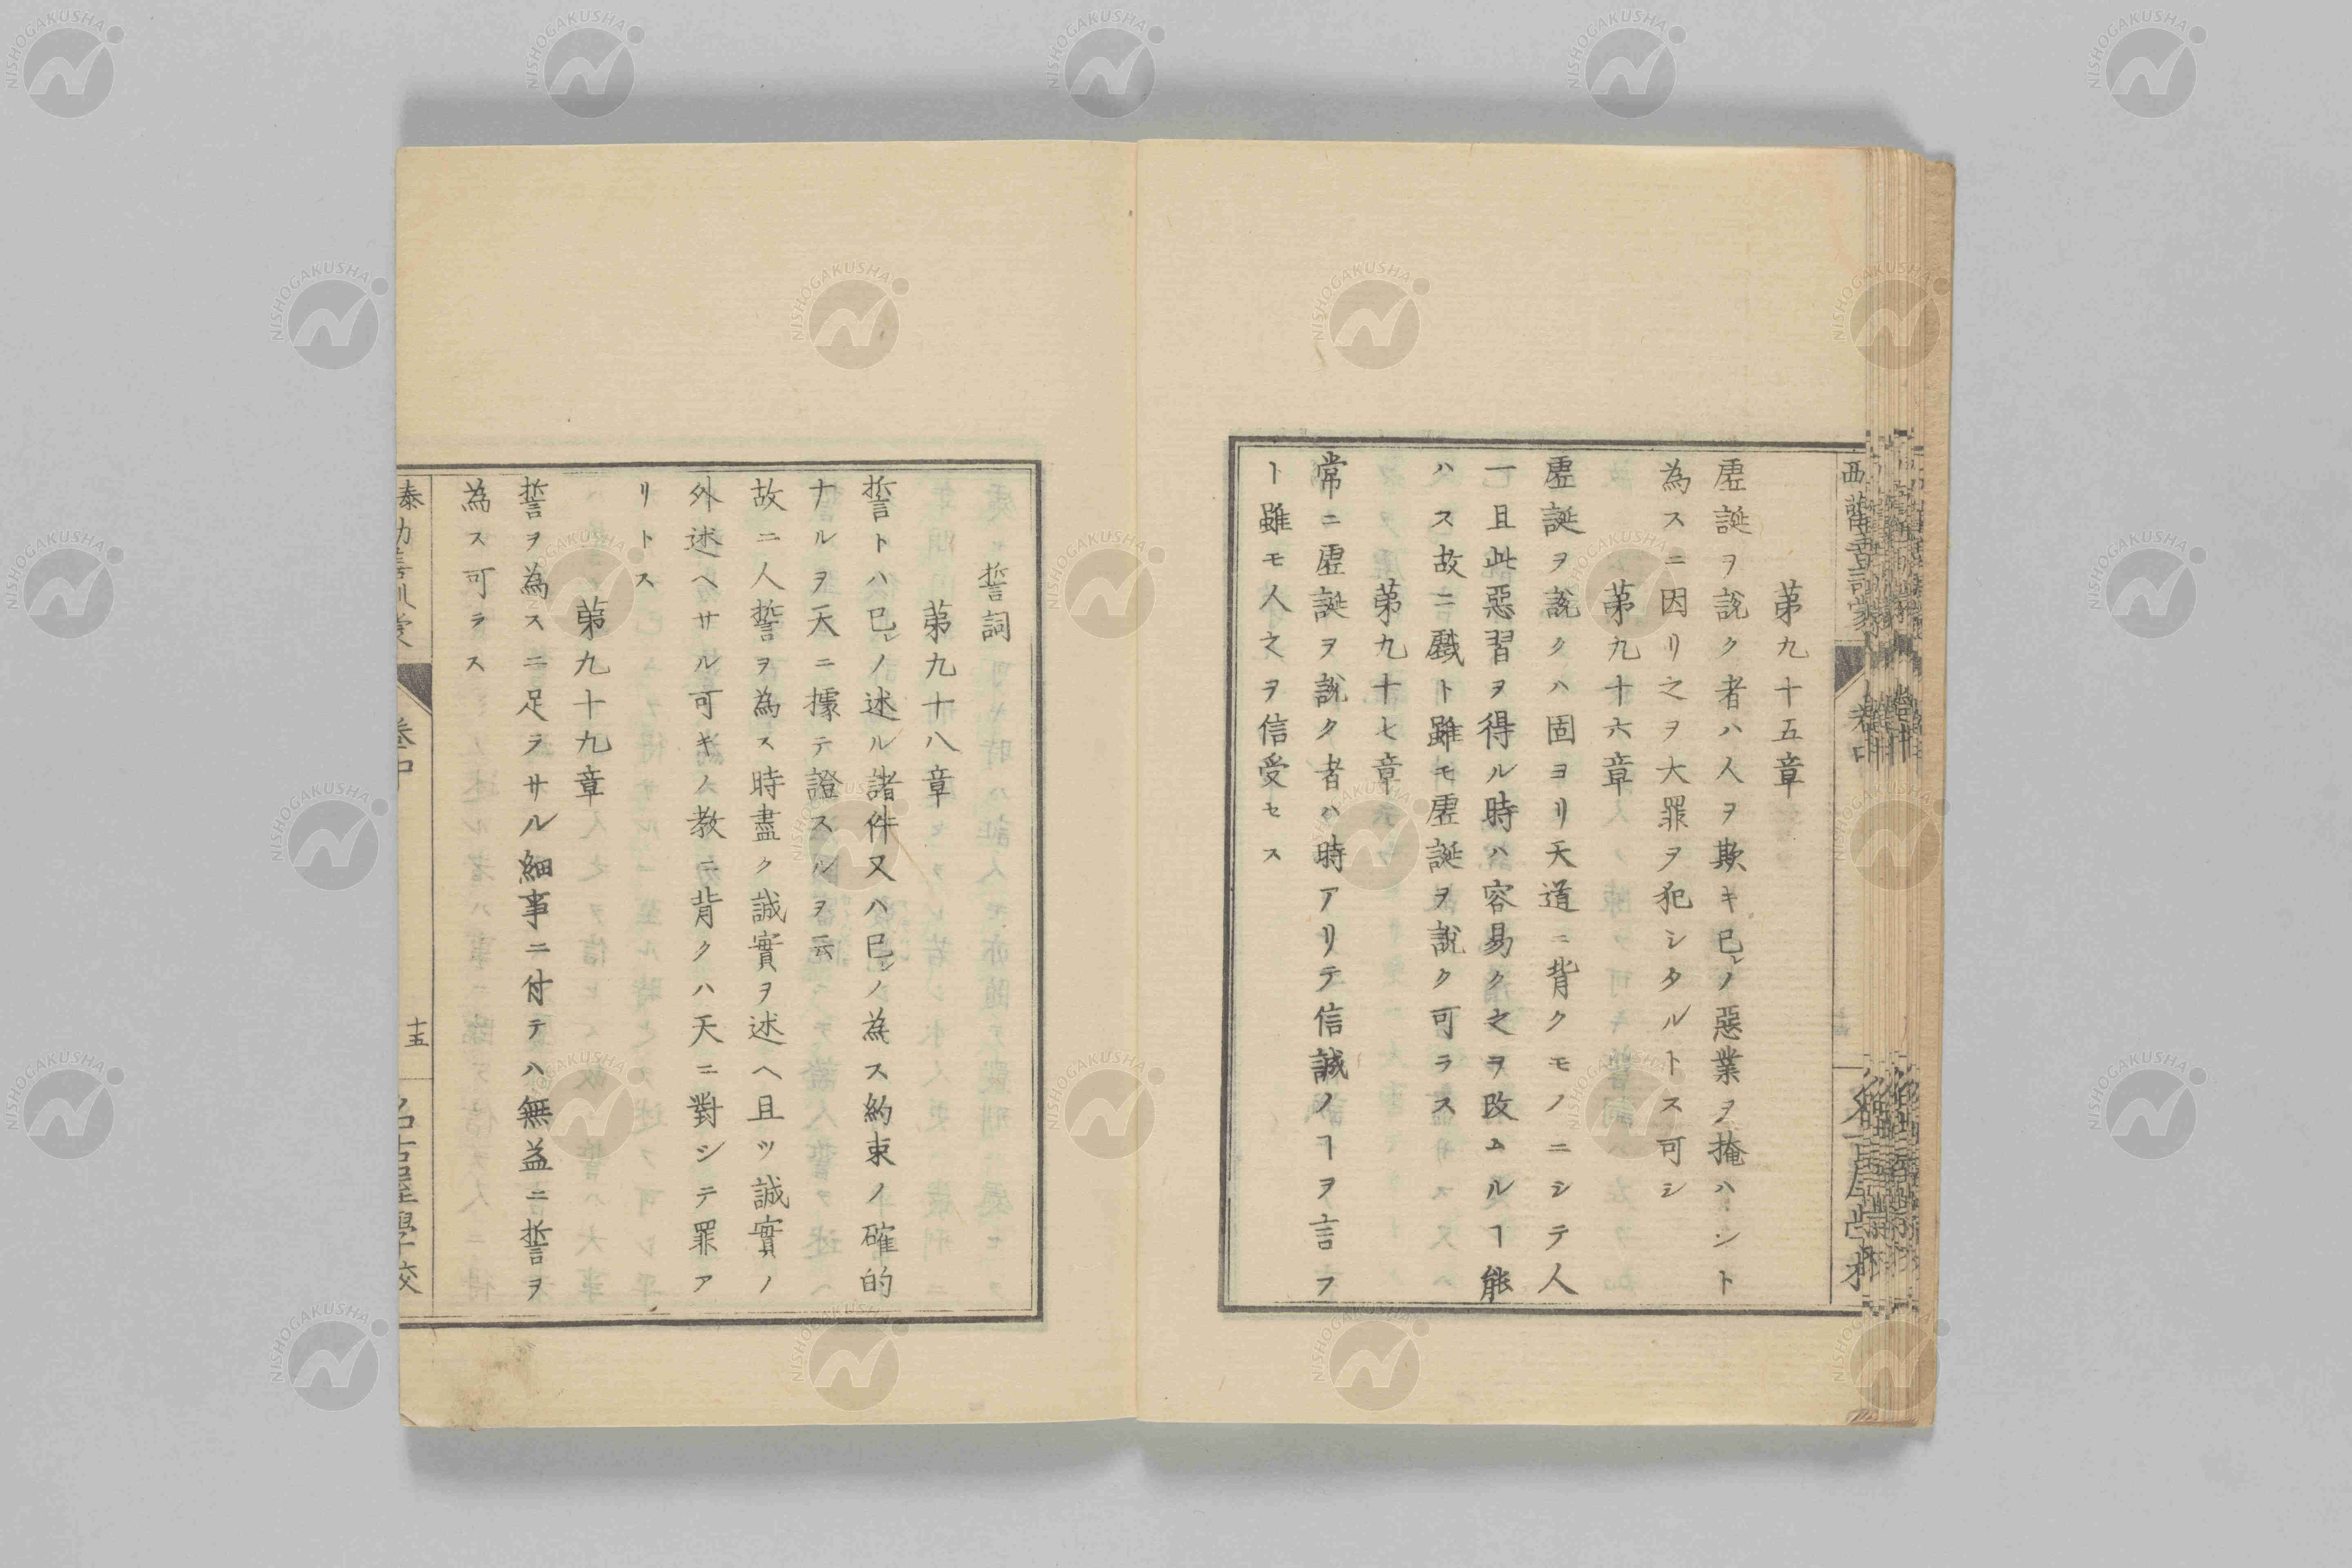 第九十五章
虛誕ヲ說ク者ハ人ヲ欺キ已レノ惡業ヲ掩ハント
為スニ因リ之ヲ大罪ヲ犯シタルトス可シ
第九十六章
虛誕ヲ說クハ固ヨリ天道ニ背クモノニシテ人
一且此惡習ヲ得ル時ハ容易ク之ヲ改ムルヿ能
ハス故ニ戱ト雖モ虛誕ヲ說ク可ラス
第九十七章
常ニ虛誕ヲ說ク者ハ時アリテ信誠ノヿヲ言フ
ト雖モ人之ヲ信受セス
誓詞
第九十八章
誓トハ已レノ述ル諸件又ハ已レノ為ス約束ノ確的
ナルヲ天ニ據テ證スルヲ云
故ニ人誓ヲ為ス時盡ク誠實ヲ述ヘ且ツ誠實ノ
外述ヘサル可キノ教ニ背クハ天ニ對シテ罪ア
リトス
第九十九章
誓ヲ為スニ足ラサル細事ニ付テハ無益ニ誓ヲ
為ス可ラス
十五
NISHOGAKUSHA